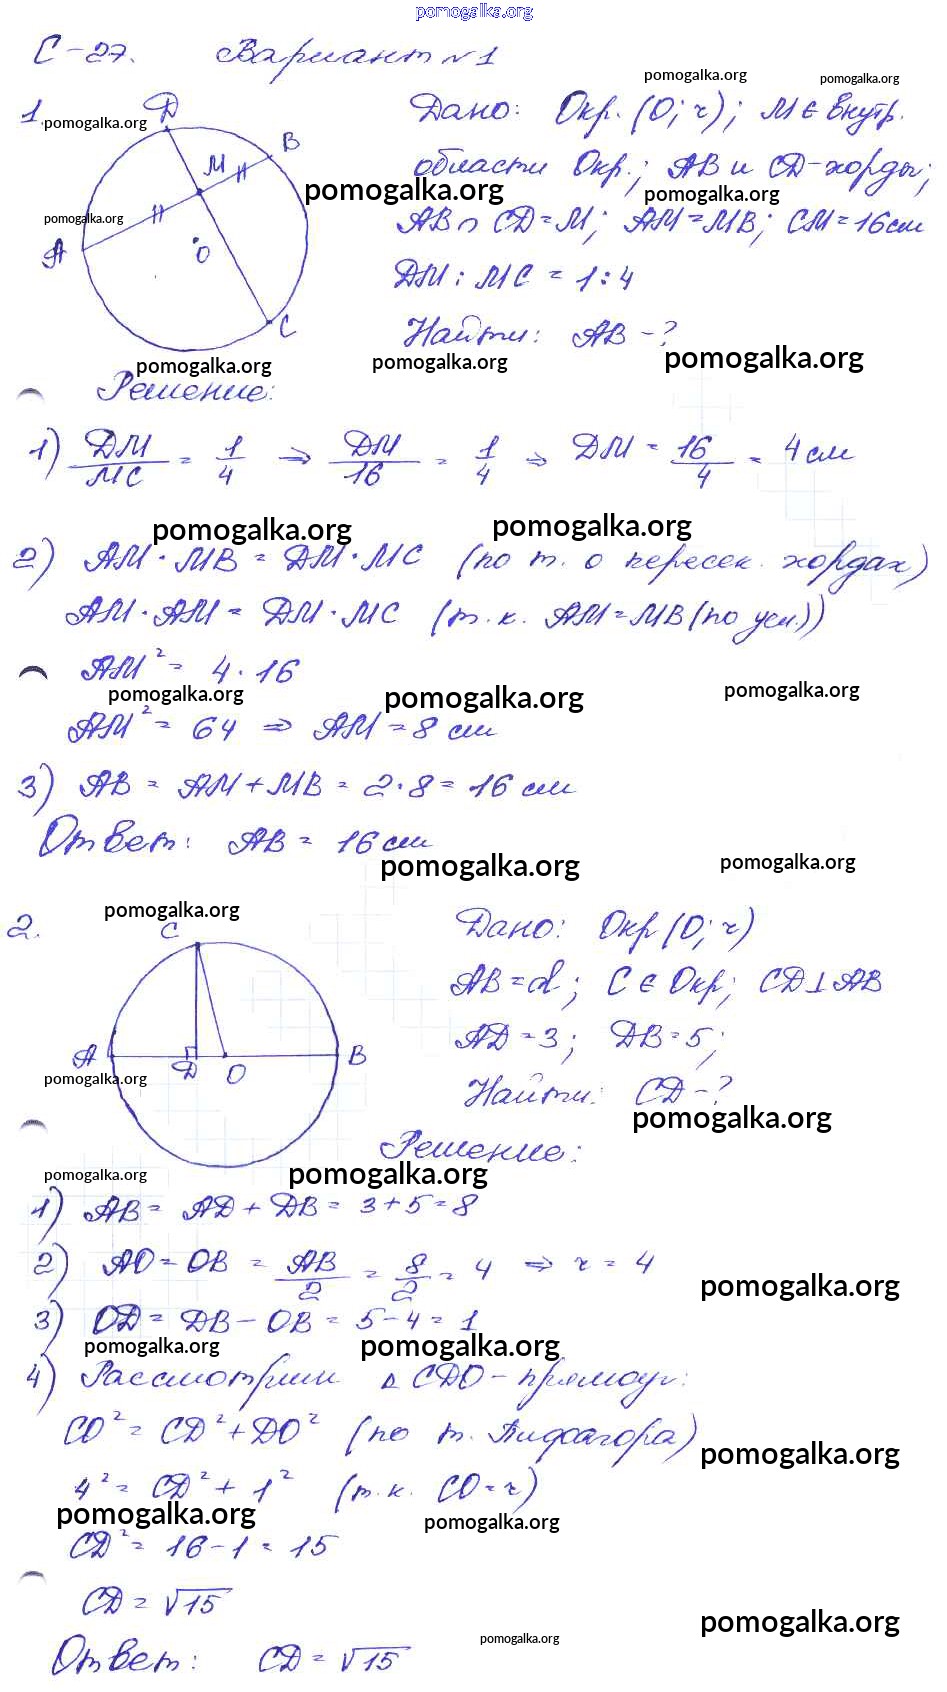 pomogalka.org
С-27. Вариант №1
pomogalka.org pomogalka.org
1. pomogalka.org
D B M A O C
Дано: Окр. (О; r); М ∈ внутр.
области Окр.; AB и CD-хорды;
pomogalka.org pomogalka.org
pomogalka.org
AB ∩ CD = M; AM = MB; CM = 16 см
DM : MC = 1 : 4
Найти: AB - ?
pomogalka.org pomogalka.org pomogalka.org
Решение:
1) DM/MC = 1/4 => DM/16 = 1/4 => DM = 16/4 = 4 см
pomogalka.org pomogalka.org
2) AM · MB = DM · MC (по т. о пересек. хордах)
AM · AM = DM · MC (т.к. AM = MB (по усл.))
AM² = 4 · 16
pomogalka.org pomogalka.org pomogalka.org
AM² = 64 => AM = 8 см
3) AB = AM + MB = 2 · 8 = 16 см
Ответ: AB = 16 см
pomogalka.org pomogalka.org
pomogalka.org
2.
C A D O B
Дано: Окр (О; r)
AB = d; C ∈ Окр; CD ⊥ AB
AD = 3; DB = 5;
pomogalka.org
Найти: CD - ?
pomogalka.org
Решение:
pomogalka.org pomogalka.org
1) AB = AD + DB = 3 + 5 = 8
2) AO = OB = AB/2 = 8/2 = 4 => r = 4
pomogalka.org
3) OD = DB - OB = 5 - 4 = 1
pomogalka.org pomogalka.org
4) Рассмотрим Δ CDO - прямоуг:
CO² = CD² + DO² (по т. Пифагора)
pomogalka.org
4² = CD² + 1² (т.к. CO = r)
pomogalka.org pomogalka.org
CD² = 16 - 1 = 15
CD = √15
pomogalka.org
pomogalka.org
Ответ: CD = √15